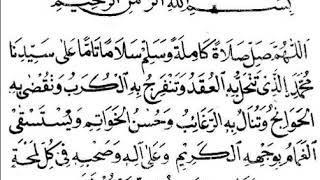 بِسْمِ اللهِ الرَّحْمٰنِ الرَّحِيْمِ
اَللّٰهُمَّ صَلِّ صَلَاةً كَامِلَةً وَسَلِّمْ سَلَامًا تَامًّا عَلٰى سَيِّدِنَا
مُحَمَّدِ الَّذِيْ تَنْحَلُّ بِهِ الْعُقَدُ وَتَنْفَرِجُ بِهِ الْكُرَبُ وَتُقْضٰى بِهِ
الْحَوَائِجُ وَتُنَالُ بِهِ الرَّغَائِبُ وَحُسْنُ الْخَوَاتِمِ وَيُسْتَسْقَى
الْغَمَامُ بِوَجْهِهِ الْكَرِيْمِ وَعَلٰى اٰلِهِ وَصَحْبِهِ فِيْ كُلِّ لَمْحَةٍ